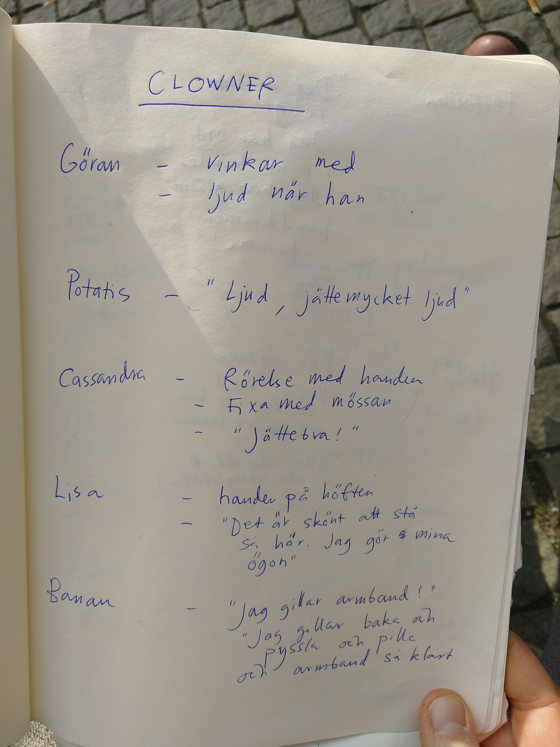 CLOWNER
Göran - vinkar med
- ljud när han
Potatis - "Ljud, jättemycket ljud"
Cassandra - Rörelse med handen
- Fixa med mössan
- "Jättebra!"
Lisa - handen på höften
- "Det är skönt att stå
så här. Jag gör mina
ögon"
Banan - "Jag gillar armband!"
"Jag gillar baka och
pyssla och pilla
och armband så klart